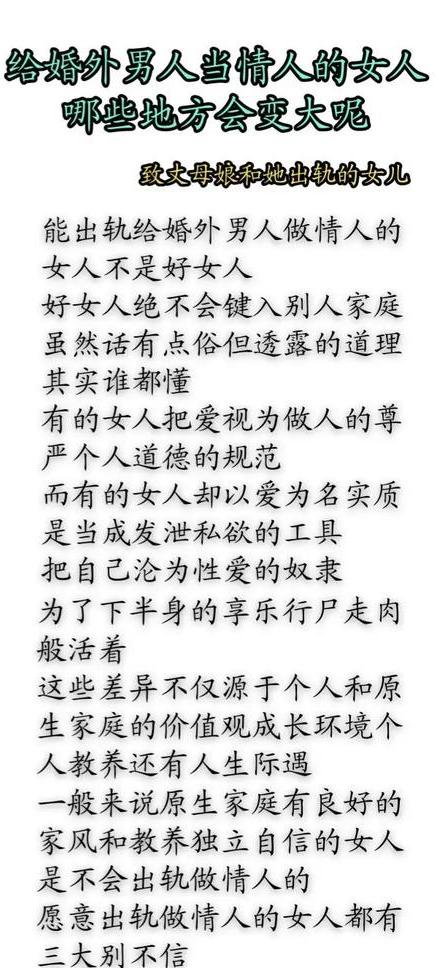 给婚外男人当情人的女人
哪些地方会变大呢
致丈母娘和她出轨的女儿
能出轨给婚外男人做情人的
女人不是好女人
好女人绝不会键入别人家庭
虽然话有点俗但透露的道理
其实谁都懂
有的女人把爱视为做人的尊
严个人道德的规范
而有的女人却以爱为名实质
是当成发泄私欲的工具
把自己沦为性爱的奴隶
为了下半身的享乐行尸走肉
般活着
这些差异不仅源于个人和原
生家庭的价值观成长环境个
人教养还有人生际遇
一般来说原生家庭有良好的
家风和教养独立自信的女人
是不会出轨做情人的
愿意出轨做情人的女人都有
三大别不信